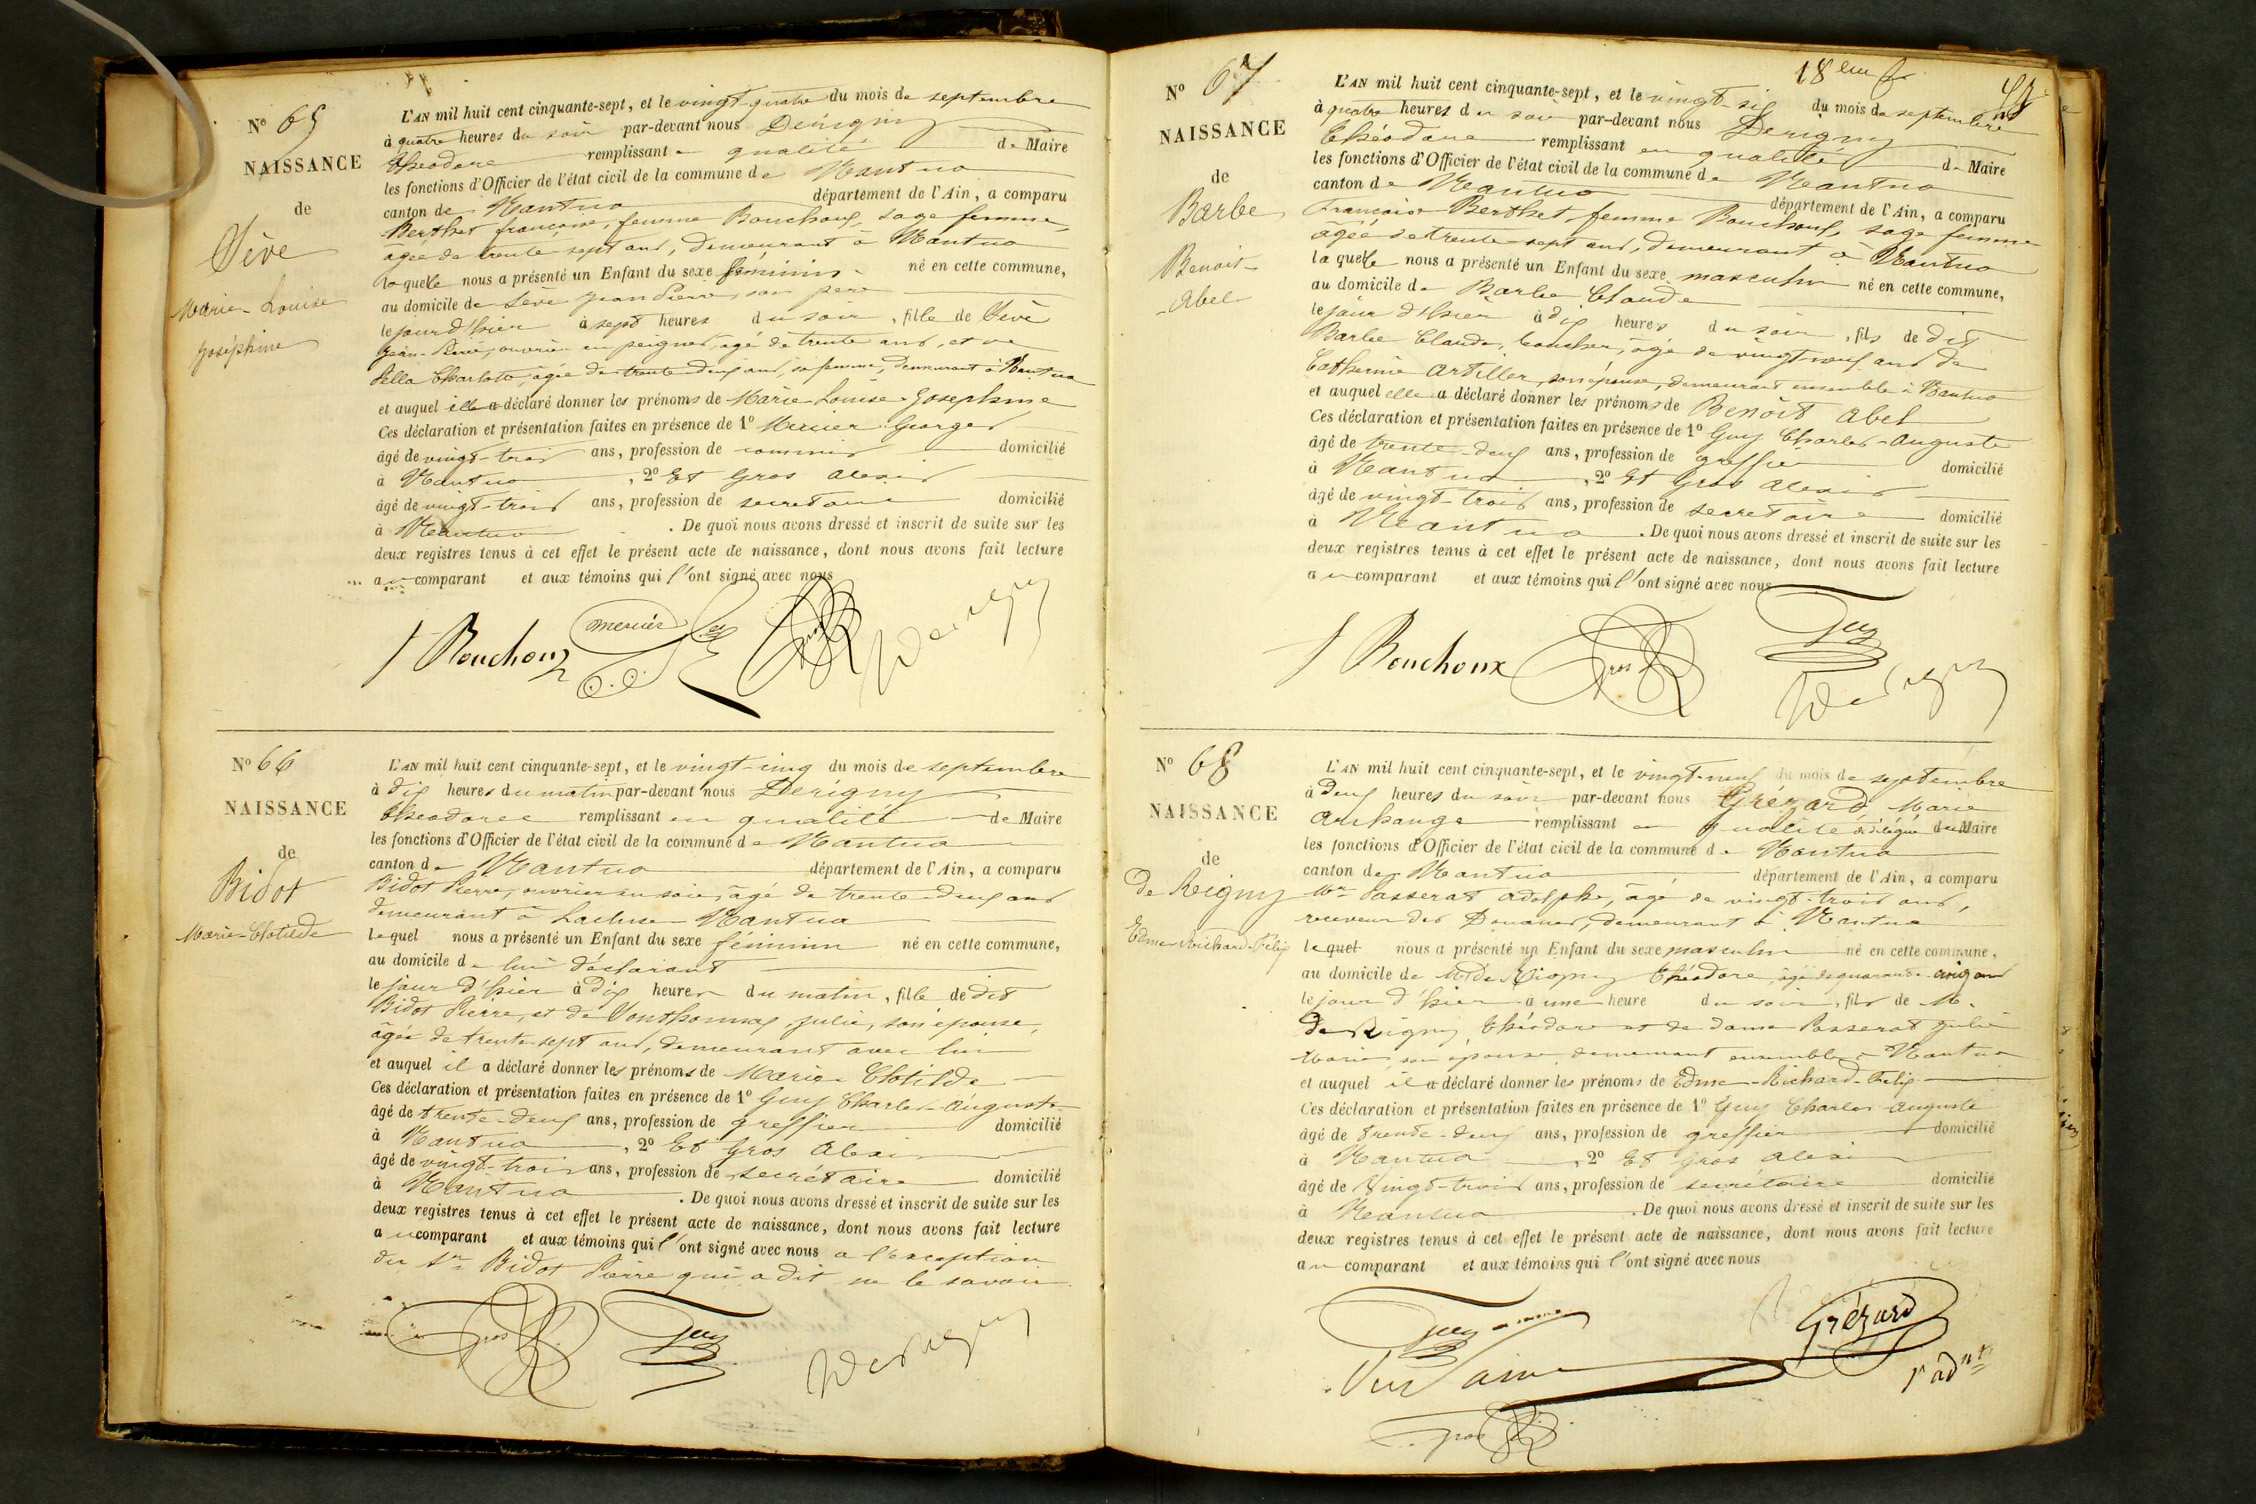 Nº 65
NAISSANCE
de
Sève
Marie-Louise
Joséphine
L'AN mil huit cent cinquante-sept, et le vingt-quatre du mois de septembre
à quatre heures du soir par-devant nous Derigny
Théodore remplissant en qualité de Maire
les fonctions d'Officier de l'état civil de la commune de Nantua
canton de Nantua département de l'Ain, a comparu
Berthet françoise, femme Bouchoux, sage femme,
âgée de trente sept ans, demeurant à Nantua
laquelle nous a présenté un Enfant du sexe féminin né en cette commune,
au domicile de Sève Jean Pierre, son père
le jour d'hier à sept heures du soir, fille de Sève
Jean-Pierre, ouvrier en peignes, âgé de trente ans, et de
Pella Charlotte, âgée de trente deux ans, sa femme, demeurant à Nantua
et auquel elle a déclaré donner les prénoms de Marie-Louise-Josephine
Ces déclaration et présentation faites en présence de 1º Mercier Georges
âgé de vingt-trois ans, profession de commis domicilié
à Nantua, 2º Et Gros Alexis
âgé de vingt-trois ans, profession de secretaire domicilié
à Nantua. De quoi nous avons dressé et inscrit de suite sur les
deux registres tenus à cet effet le présent acte de naissance, dont nous avons fait lecture
au comparant et aux témoins qui l'ont signé avec nous
f Bouchoux mercier Gros Derigny
Nº 66
NAISSANCE
de
Bidot
Marie-Clotilde
L'AN mil huit cent cinquante-sept, et le vingt-cinq du mois de septembre
à dix heures du matin par-devant nous Derigny
Théodore remplissant en qualité de Maire
les fonctions d'Officier de l'état civil de la commune de Nantua
canton de Nantua département de l'Ain, a comparu
Bidot Pierre, ouvrier en soie, âgé de trente-deux ans
demeurant à Lacluse-Nantua
lequel nous a présenté un Enfant du sexe féminin né en cette commune,
au domicile de lui déclarant
le jour d'hier à dix heures du matin, fille de dit
Bidot Pierre, et de Vonthonnax Julie, son épouse,
âgée de trente sept ans, demeurant avec lui
et auquel il a déclaré donner les prénoms de Marie Clotilde
Ces déclaration et présentation faites en présence de 1º Guy Charles-Auguste
âgé de trente-deux ans, profession de greffier domicilié
à Nantua, 2º Et Gros Alexis
âgé de vingt-trois ans, profession de secrétaire domicilié
à Nantua. De quoi nous avons dressé et inscrit de suite sur les
deux registres tenus à cet effet le présent acte de naissance, dont nous avons fait lecture
au comparant et aux témoins qui l'ont signé avec nous a l'exception
du Sr Bidot Pierre qui a dit ne le savoir
Gros Guy Derigny
18
Nº 67
NAISSANCE
de
Barbe
Benoit-
Abel
L'AN mil huit cent cinquante-sept, et le vingt-six du mois de septembre
à quatre heures du soir par-devant nous Derigny
Théodore remplissant en qualité de Maire
les fonctions d'Officier de l'état civil de la commune de Nantua
canton de Nantua département de l'Ain, a comparu
françoise Berthet, femme Bouchoux, sage femme
âgée de trente-sept ans, demeurant à Nantua
laquelle nous a présenté un Enfant du sexe masculin né en cette commune,
au domicile de Barbe Claude
le jour d'hier à dix heures du soir, fils de dit
Barbe Claude, âgé de vingt neuf ans de
Catherine Artiller, son épouse, demeurant ensemble à Nantua
et auquel elle a déclaré donner les prénoms de Benoit Abel
Ces déclaration et présentation faites en présence de 1º Guy Charles-Auguste
âgé de trente-deux ans, profession de greffier domicilié
à Nantua, 2º Et Gros Alexis
âgé de vingt-trois ans, profession de secrétaire domicilié
à Nantua. De quoi nous avons dressé et inscrit de suite sur les
deux registres tenus à cet effet le présent acte de naissance, dont nous avons fait lecture
au comparant et aux témoins qui l'ont signé avec nous
f Bouchoux Gros Guy Derigny
Nº 68
NAISSANCE
de
De Rigny
Edme-Richard-Félix
L'AN mil huit cent cinquante-sept, et le vingt-neuf du mois de septembre
à deux heures du soir par-devant nous Grézard, Marie
Archange remplissant en qualité de délégué du Maire
les fonctions d'Officier de l'état civil de la commune de Nantua
canton de Nantua département de l'Ain, a comparu
Mr Passerat Adolphe, âgé de vingt-trois ans,
receveur des Douanes, demeurant à Nantua
lequel nous a présenté un Enfant du sexe masculin né en cette commune,
au domicile de Mr De Rigny Théodore, âgé de quarante cinq ans
le jour d'hier à une heure du soir, fils de M.
De Rigny, Théodore et de dame Passerat Julie
Marie, son épouse, demeurant ensemble à Nantua
et auquel il a déclaré donner les prénoms de Edme-Richard-Félix
Ces déclaration et présentation faites en présence de 1º Guy Charles Auguste
âgé de trente-deux ans, profession de greffier domicilié
à Nantua, 2º Et Gros Alexis
âgé de vingt-trois ans, profession de secrétaire domicilié
à Nantua. De quoi nous avons dressé et inscrit de suite sur les
deux registres tenus à cet effet le présent acte de naissance, dont nous avons fait lecture
au comparant et aux témoins qui l'ont signé avec nous
Guy Grézard
1er adnt
Gros